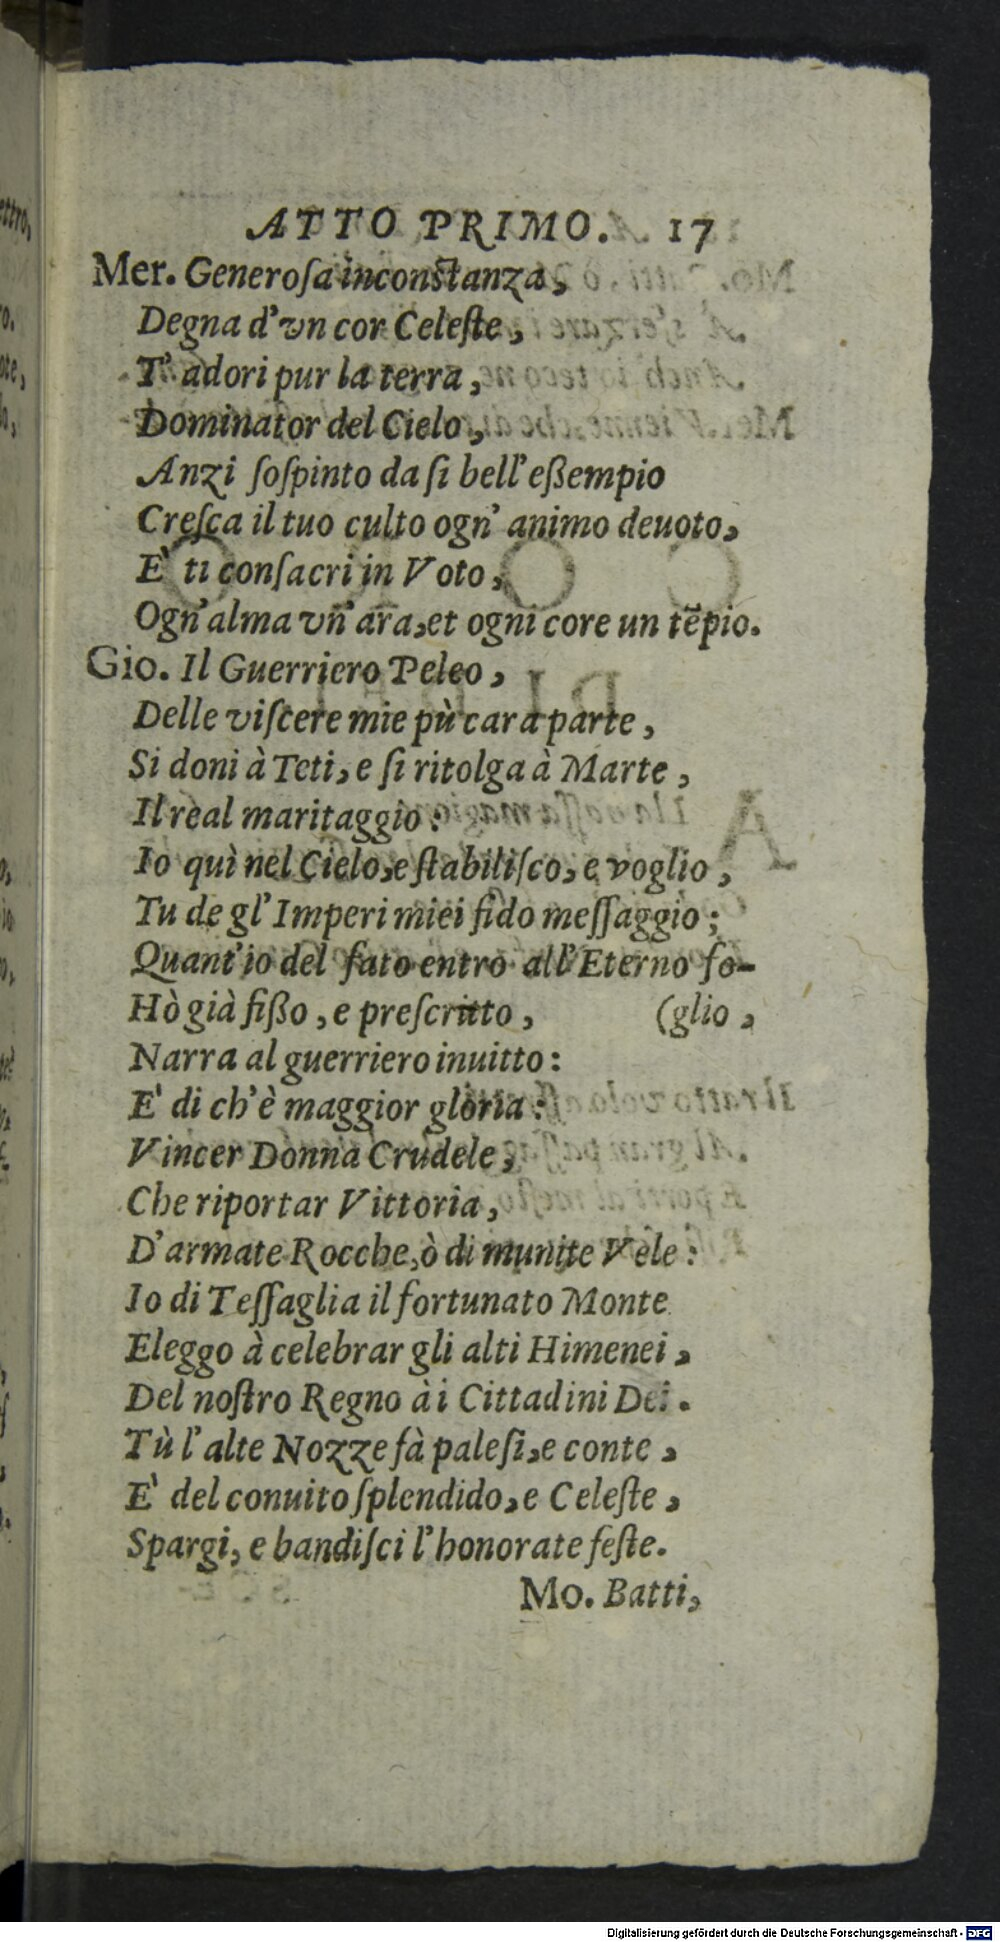 ATTO PRIMO. 17
Mer. Generoſa inconstanza,
Degna d'vn cor Celeſte,
T' adori pur la terra,
Dominator del Cielo,
Anzi ſoſpinto da ſi bell'eßempio
Creſca il tuo culto ogn' animo deuoto,
E' ti conſacri in Voto,
Ogn'alma vn'ara, et ogni core un tēpio.
Gio. Il Guerriero Peleo,
Delle viſcere mie pù cara parte,
Si doni à Teti, e ſi ritolga à Marte,
Il real maritaggio:
Io quì nel Cielo, e ſtabiliſco, e voglio,
Tu de gl'Imperi miei fido meſſaggio;
Quant'io del fato entro all'Eterno ſo-
Hò già fißo, e preſcritto, (glio,
Narra al guerriero inuitto:
E' di ch'è maggior gloria:
Vincer Donna Crudele,
Che riportar Vittoria,
D'armate Rocche, ò di munite Vele:
Io di Teſſaglia il fortunato Monte
Eleggo à celebrar gli alti Himenei,
Del noſtro Regno à i Cittadini Dei.
Tù l'alte Nozze fà paleſi, e conte,
E' del conuito ſplendido, e Celeſte,
Spargi, e bandiſci l'honorate feſte.
Mo. Batti,
Digitalisierung gefördert durch die Deutsche Forschungsgemeinschaft - DFG